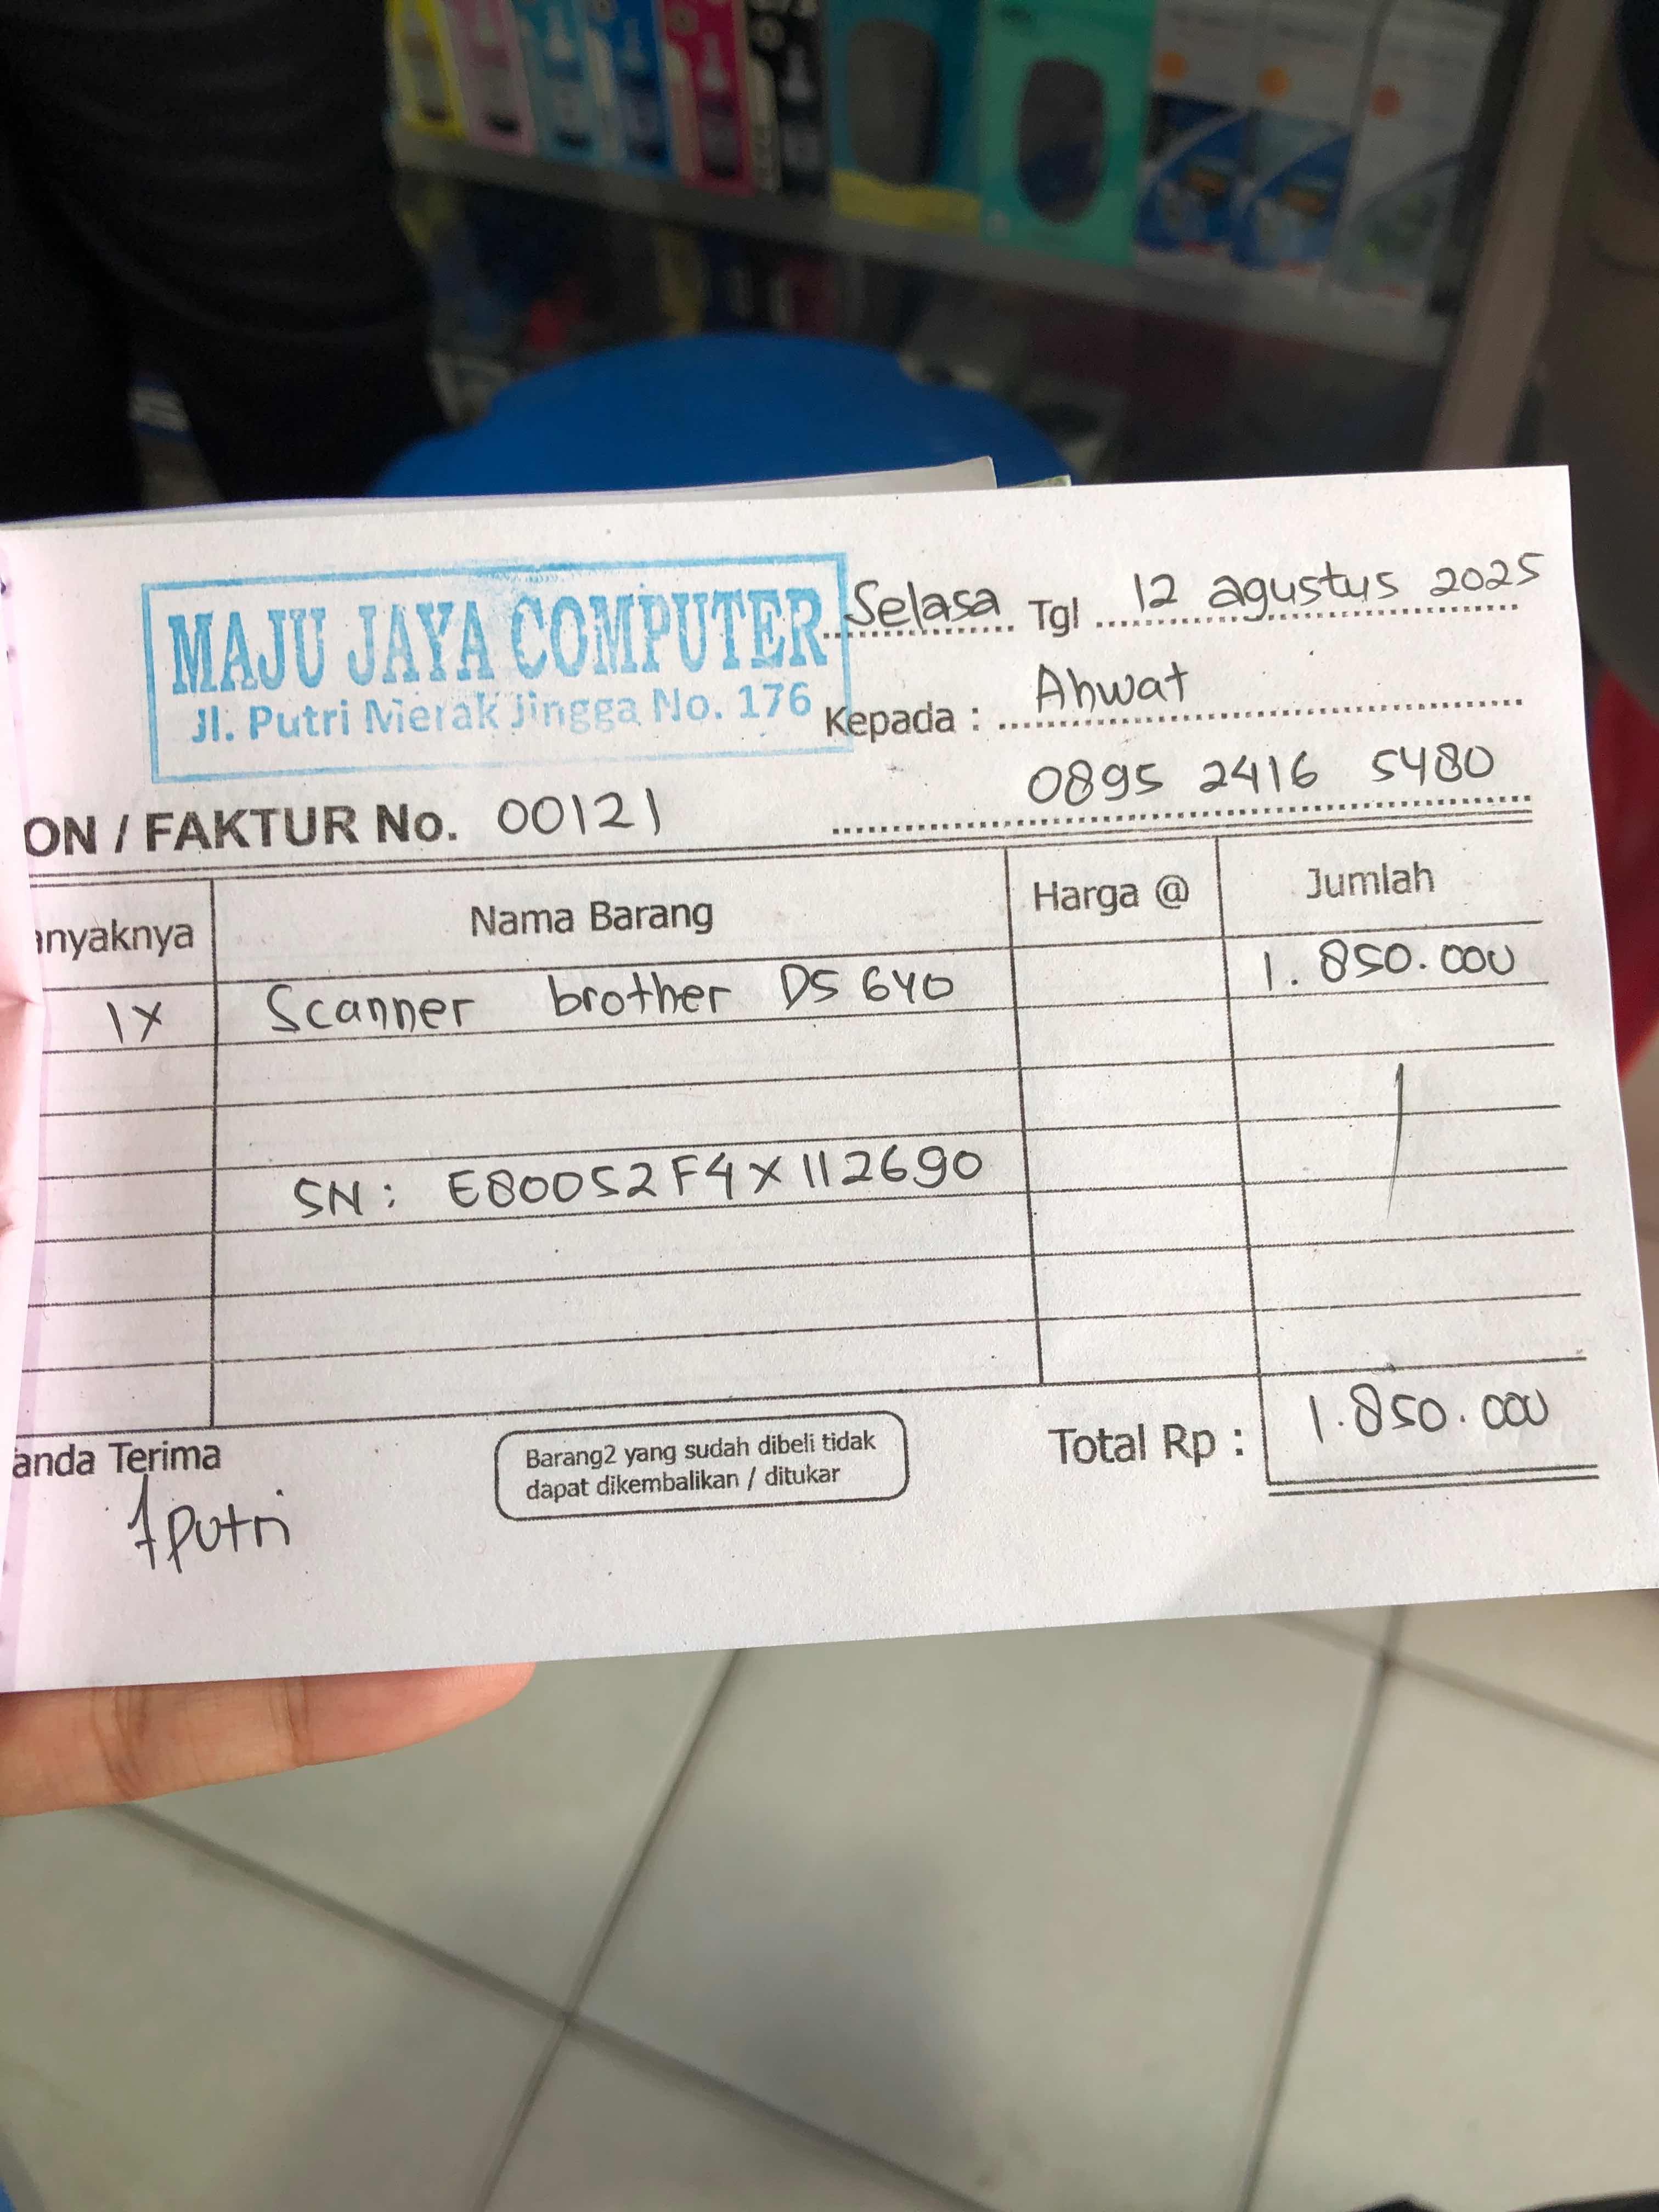 MAJU JAYA COMPUTER
Jl. Putri Merak Jingga No. 176
Selasa Tgl 12 agustus 2025
Kepada : Ahwat
0895 2416 5480
ON / FAKTUR No. 00121
anyaknya Nama Barang Harga @ Jumlah
1X Scanner brother DS 640 1.850.000
SN : E80052F4X112690
anda Terima
Barang2 yang sudah dibeli tidak
dapat dikembalikan / ditukar
Total Rp : 1.850.000
Putri